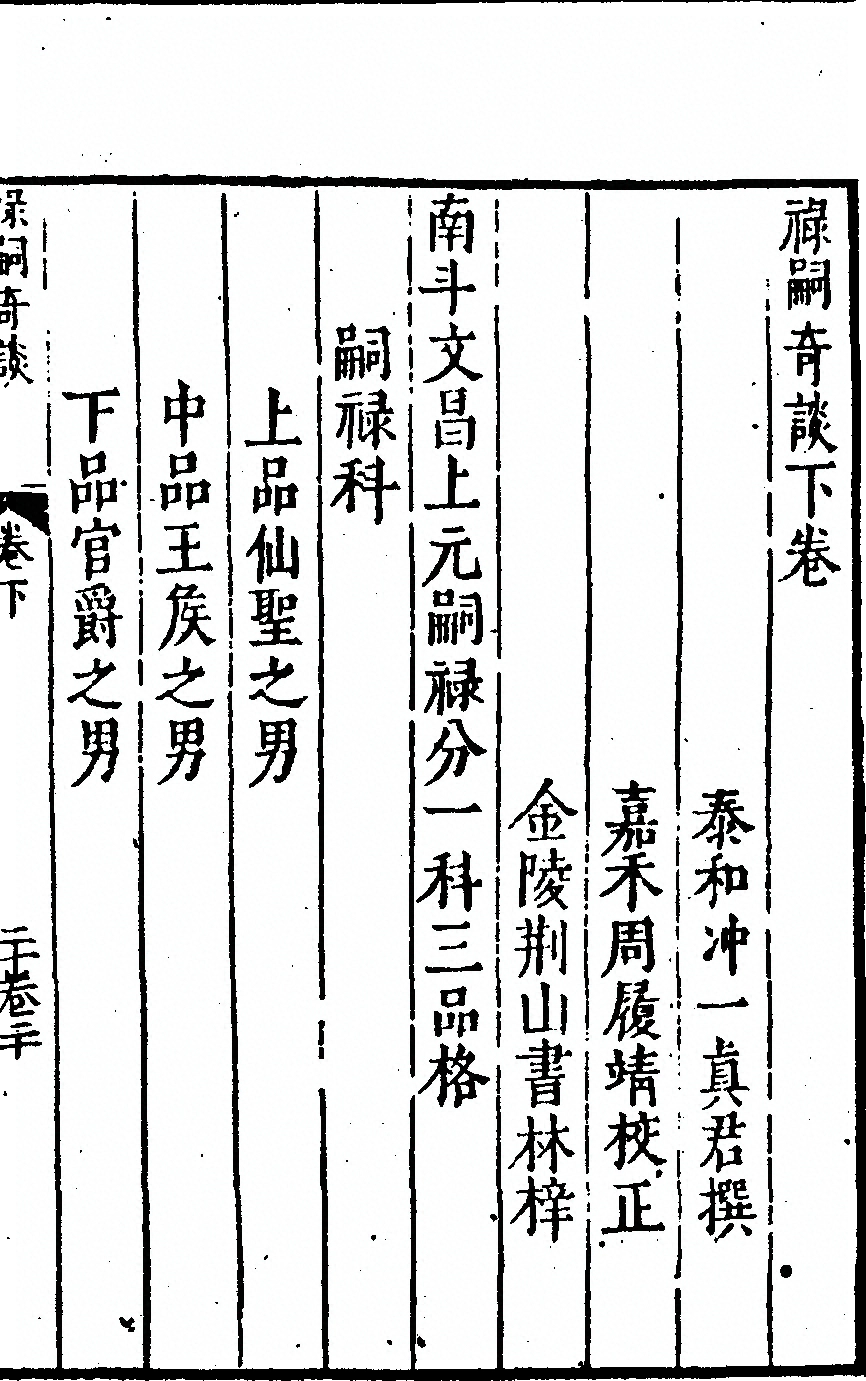 祿嗣奇談下卷
泰和冲一真君撰
嘉禾周履靖校正
金陵荆山書林梓
南斗文昌上元嗣祿分一科三品格
嗣祿科
上品仙聖之男
中品王矦之男
下品官爵之男
祿嗣奇談
卷下